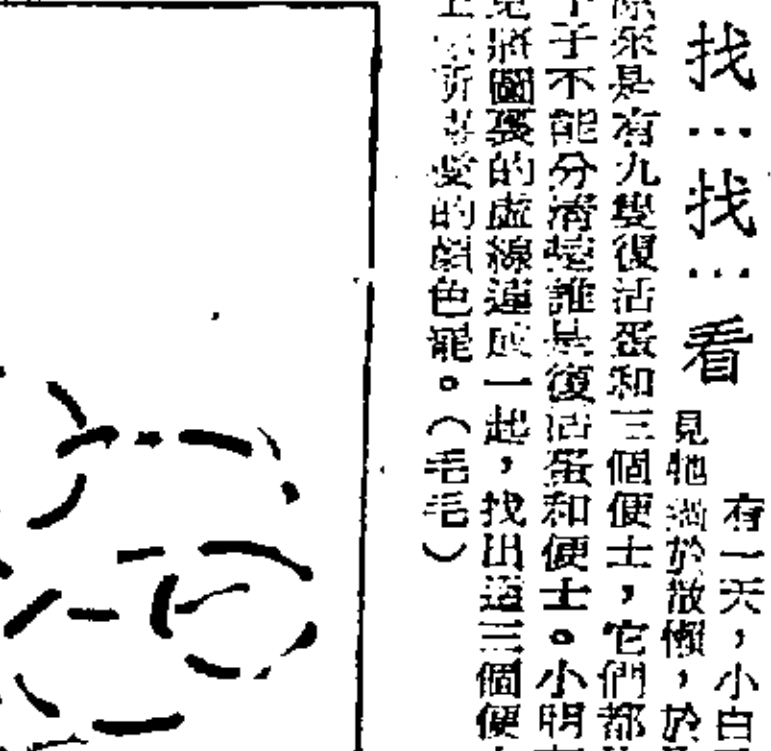 找…找…看
有一天，小白
見牠過於散懶，於
來是有九隻復活蛋和三個便士，它們都
子不能分清楚誰是復活蛋和便士。小明
將圖裏的虛線連成一起，找出這三個便
所喜愛的顏色罷。（毛毛）